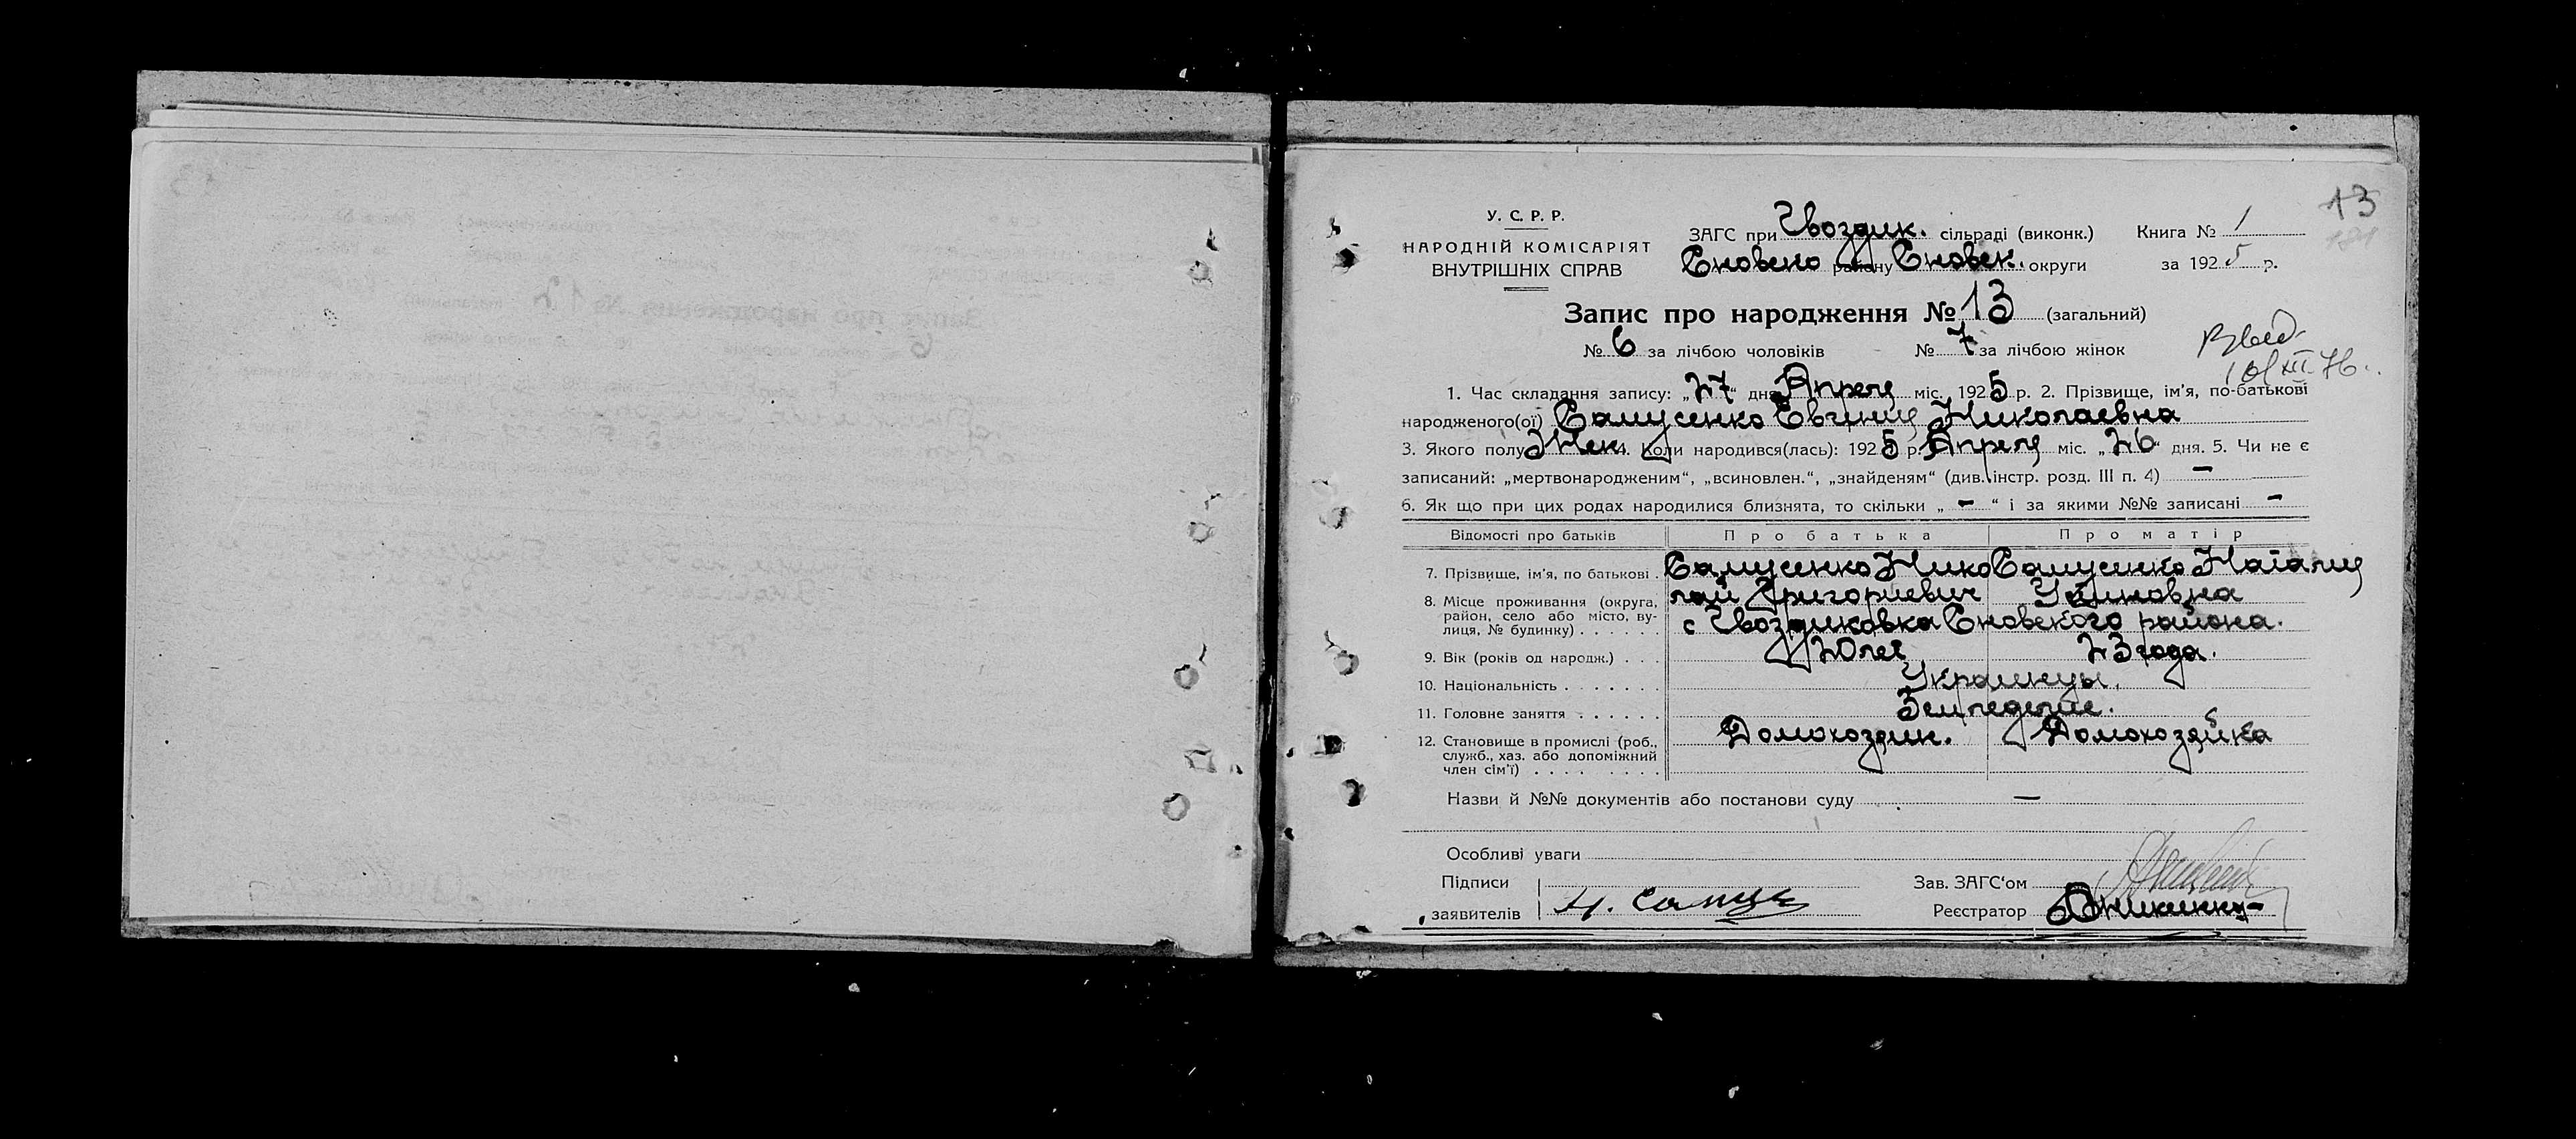 13
У. С. Р. Р.
НАРОДНІЙ КОМІСАРІЯТ
ВНУТРІШНІХ СПРАВ
ЗАГС при Гвоздик. сільраді (виконк.) Книга № 1
Сновско району Сновск. округи за 1925 р.
Запис про народження № 13 (загальний)
№ 6 за лічбою чоловіків № 7 за лічбою жінок
1. Час складання запису: „27“ дня Апреля міс. 1925 р. 2. Прізвище, ім’я, по-батькові
народженого(ої) Самусенко Евгиния Николаевна
3. Якого полу Жен. 4. Коли народився(лась): 1925 р. Апреля міс. „26“ дня. 5. Чи не є
записаний: „мертвонародженим“, „всиновлен.“, „знайденям“ (див. інстр. розд. III п. 4) —
6. Як що при цих родах народилися близнята, то скільки „ – “ і за якими №№ записані –
Відомості про батьків Про батька Про матір
7. Прізвище, ім’я, по батькові . Самусенко Нико Самусенко Наталия
лай Григориевич
8. Місце проживання (округа,
район, село або місто, ву-
лиця, № будинку) . . . . . . с Гвоздиковка Сновского района.
9. Вік (років од народж.) . . . 20 лет 23 года.
10. Національність . . . . . . . Украинцы.
11. Головне заняття . . . . . . Земледелие.
12. Становище в промислі (роб.,
служб., хаз. або допоміжний
член сім’ї) . . . . . . . . . Домохозяин. Домохозяйка
Назви й №№ документів або постанови суду —
Особливі уваги
Підписи
Зав. ЗАГС‘ом
заявителів
Реєстратор